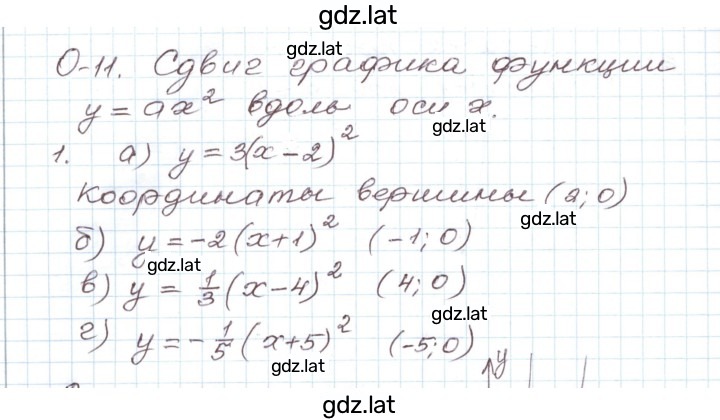 gdz.lat
О-11. Сдвиг графика функции
gdz.lat
y = ax² вдоль оси x.
gdz.lat
1. а) y = 3(x-2)²
Координаты вершины (2; 0)
gdz.lat
б) y = -2(x+1)² (-1; 0)
gdz.lat
в) y = 1/3(x-4)² (4; 0)
г) y = -1/5(x+5)² (-5; 0)
gdz.lat
y
gdz.lat